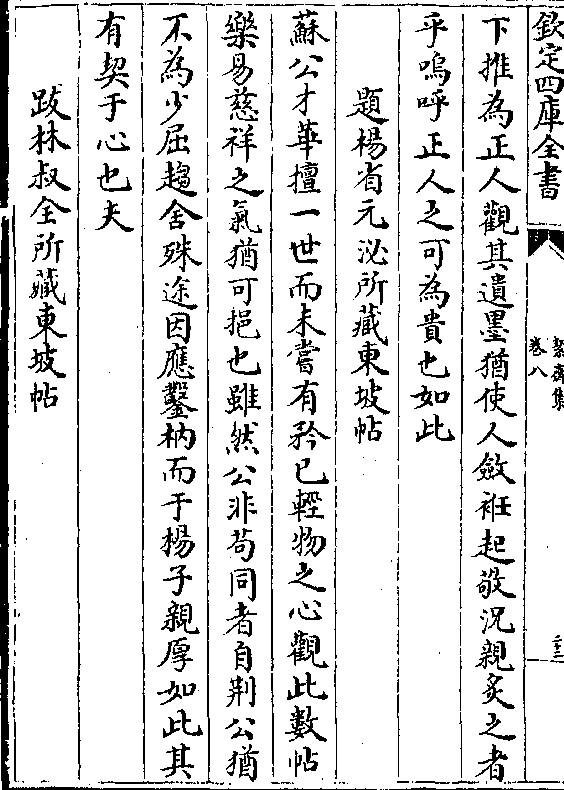 欽定四庫全書
絜齋集
卷八
二三
下推為正人觀其遺墨猶使人斂衽起敬況親炙之者
乎嗚呼正人之可為貴也如此
題楊省元泌所藏東坡帖
蘇公才華擅一世而未嘗有矜已輕物之心觀此數帖
樂易慈祥之氣猶可挹也雖然公非苟同者自荆公猶
不為少屈趨舍殊途因應鑿枘而于楊子親厚如此其
有契于心也夫
跋林叔全所藏東坡帖